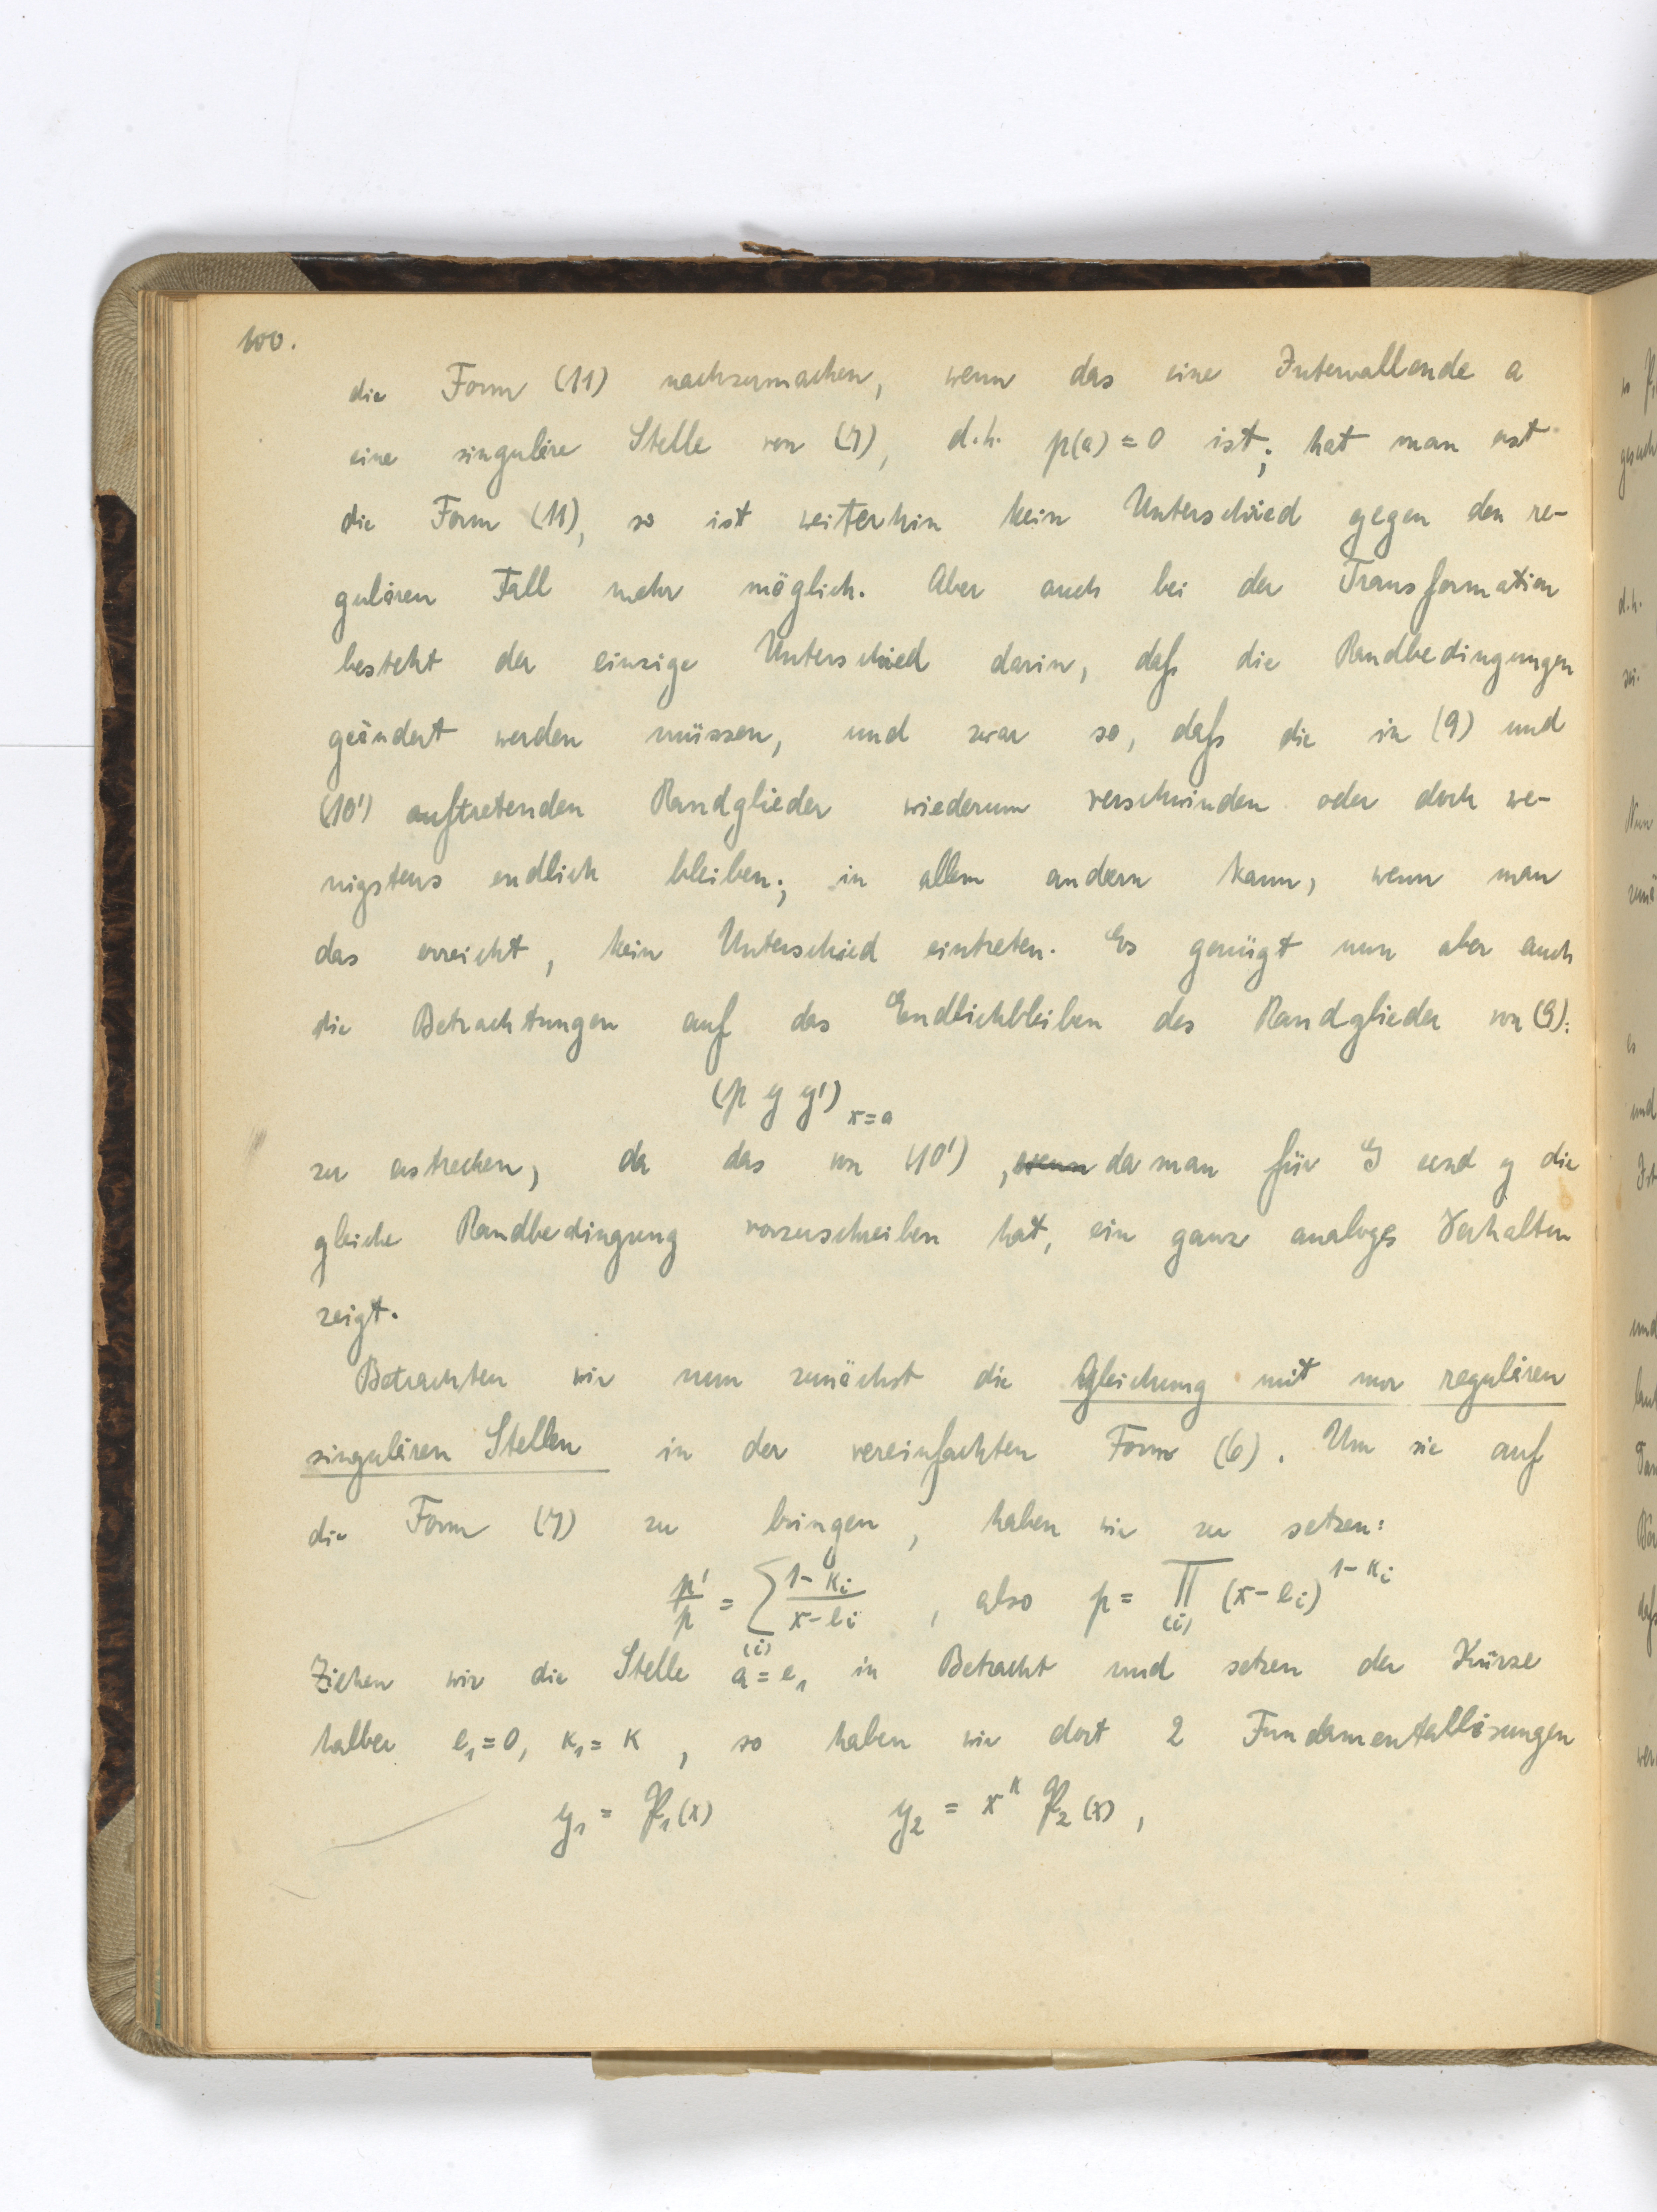 100.
die Form (11) nachzumachen, wenn das eine Intervallende a
eine singuläre Stelle von (7), d.h. p(a) = 0 ist; hat man erst
die Form (11), so ist weiterhin kein Unterschied gegen den re-
gulären Fall mehr möglich. Aber auch bei der Transformation
besteht der einzige Unterschied darin, daß die Randbedingungen
geändert werden müssen, und zwar so, daß die in (9) und
(10') auftretenden Randglieder wiederum verschwinden oder doch we-
nigstens endlich bleiben; in allem andern kann, wenn man
das erreicht, kein Unterschied eintreten. Es genügt nun aber auch
die Betrachtungen auf das Endlichbleiben des Randglieder von (9):
(p y y')x=a
zu erstrecken, da das von (10'), wenn da man für G und y die
gleiche Randbedingung vorzuschreiben hat, ein ganz analoges Verhalten
zeigt.
Betrachten wir nun zunächst die Gleichung mit nur regulären
singulären Stellen in der vereinfachten Form (6). Um sie auf
die Form (7) zu bringen, haben wir zu setzen:
p'/p = ∑(i) (1-κi)/(x-ei), also p = ∏(i) (x-ei)^(1-κi)
Ziehen wir die Stelle a = e₁ in Betracht und setzen der Kürze
halber e₁ = 0, κ₁ = κ, so haben wir dort 2 Fundamentallösungen
y₁ = 𝔓₁(x) y₂ = x^κ 𝔓₂(x),